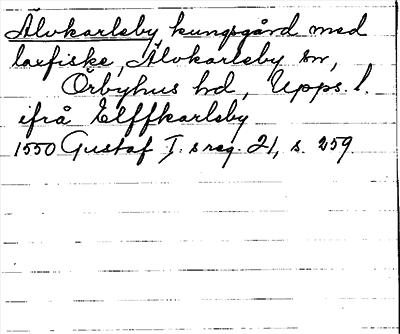 Älvkarleby kungsgård med
laxfiske, Älvkarleby sn,
Örbyhus hd, Upps. l.
ifrå Elffkarleby
1550 Gustaf I:s reg. 21, s. 259.